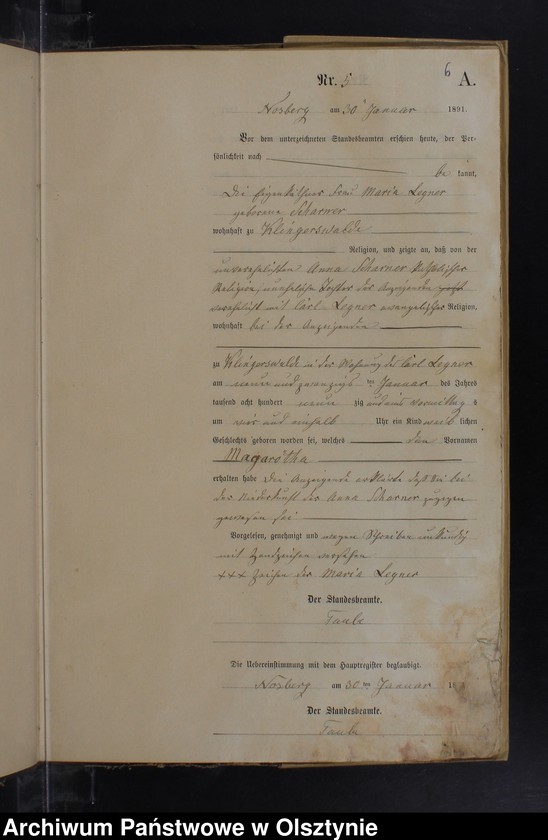 6
Nr. 5 A.
Nosberg am 30 Januar 1891.
Vor dem unterzeichneten Standesbeamten erschien heute, der Per-
sönlichkeit nach
be kannt,
die Eigenkäthner Frau Maria Legner
geborene Scharner
wohnhaft zu Klingerswalde
Religion, und zeigte an, daß von der
unverehelichten Anna Scharner katholischer
Religion, unehelichen Tochter der Anzeigenden
verehelicht mit Carl Legner evangelischer Religion,
wohnhaft bei der Anzeigenden
zu Klingerswalde in der Wohnung des Carl Legner
am neun und zwanzigs ten Januar des Jahres
tausend acht hundert neun zig und eins Vormittag s
um vier und einhalb Uhr ein Kind weib lichen
Geschlechts geboren worden sei, welches den Vornamen
Magarétha
erhalten habe Die Anzeigende erklärte daß sie bei
der Niederkunft der Anna Scharner zugegen
gewesen sei
Vorgelesen, genehmigt und wegen Schreiben unkundig
mit Handzeichen versehen
+++ Zeichen der Maria Legner
Der Standesbeamte.
Taube
Die Uebereinstimmung mit dem Hauptregister beglaubigt.
Nosberg am 30 ten Januar 18
Der Standesbeamte.
Taube
Archiwum Państwowe w Olsztynie